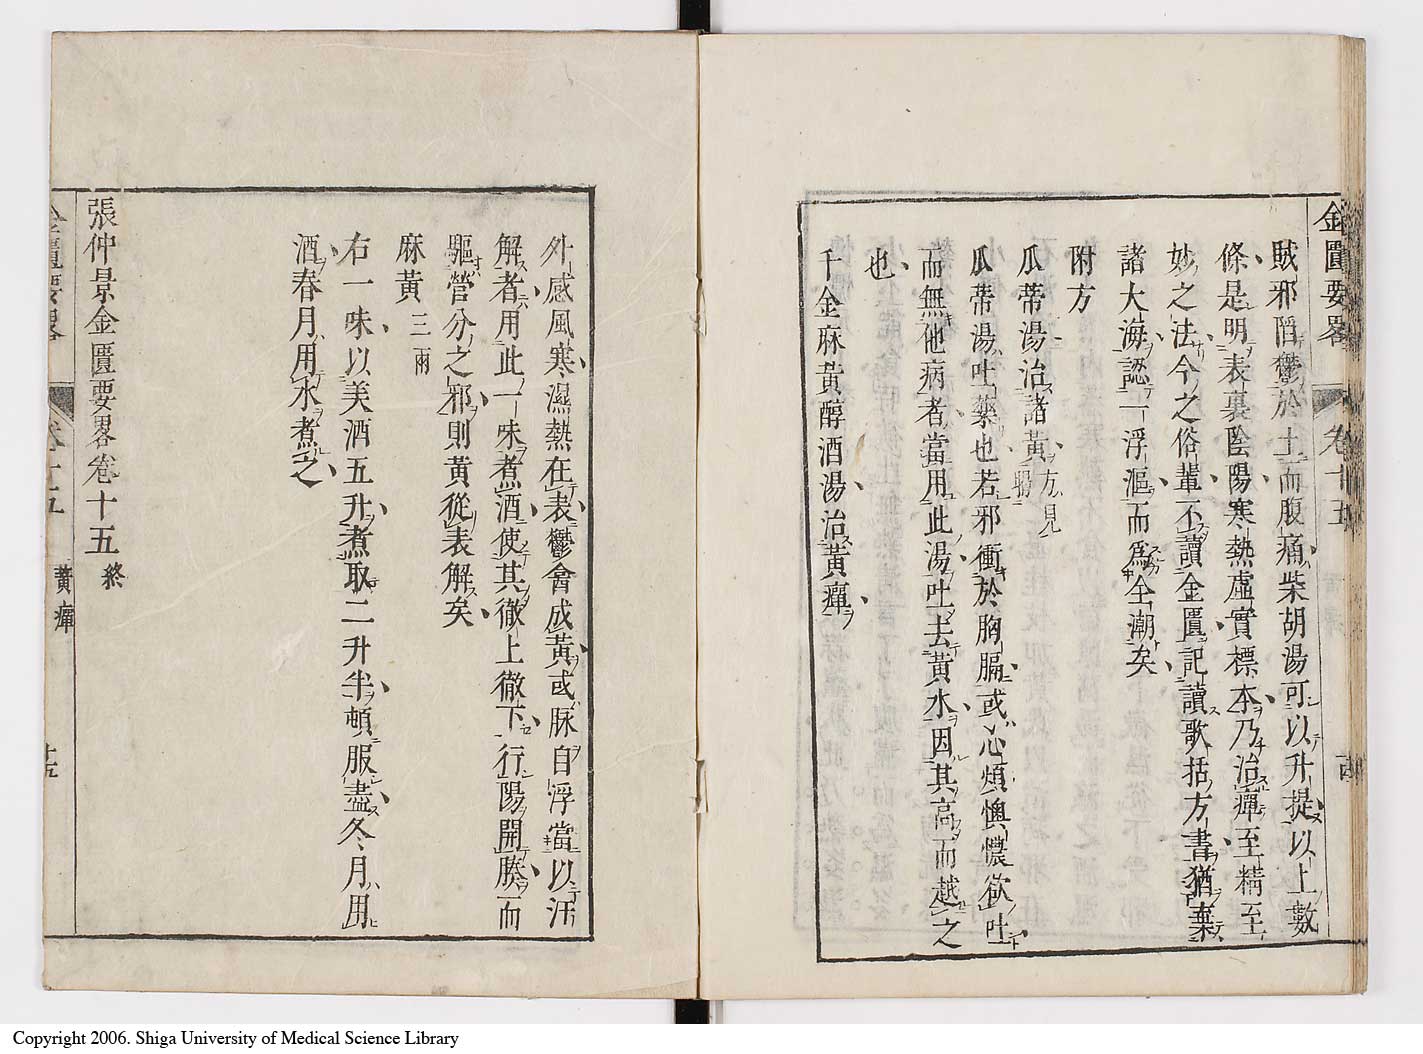 金匱要畧 卷十五
賊邪陷鬱於土而腹痛柴胡湯可以升提以上數
條是明表裏陰陽寒熱虛實標本乃治癉至精至
妙之法今之俗輩不讀金匱記讀歌括方書猶棄
諸大海認一浮漚而爲全潮矣
附方
瓜蒂湯治諸黃方見暍
瓜蒂湯吐藥也若邪衝於胸膈或心煩懊憹欲吐
而無他病者當用此湯吐去黃水因其高而越之
也
千金麻黃醇酒湯治黃癉
外感風寒濕熱在表鬱會成黃或脉自浮當以汗
解者用此一味煮酒使其徹上徹下行陽開腠而
驅營分之邪則黃從表解矣
麻黃三兩
右一味以美酒五升煮取二升半頓服盡冬月用
酒春月用水煮之
張仲景金匱要畧卷十五終
金匱要畧 卷十五 黃癉 十五
Copyright 2006. Shiga University of Medical Science Library